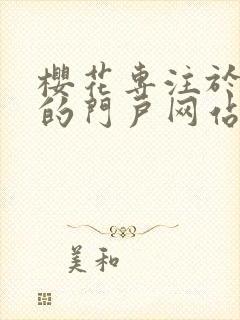 櫻花专注於
的門戸网佔
美和